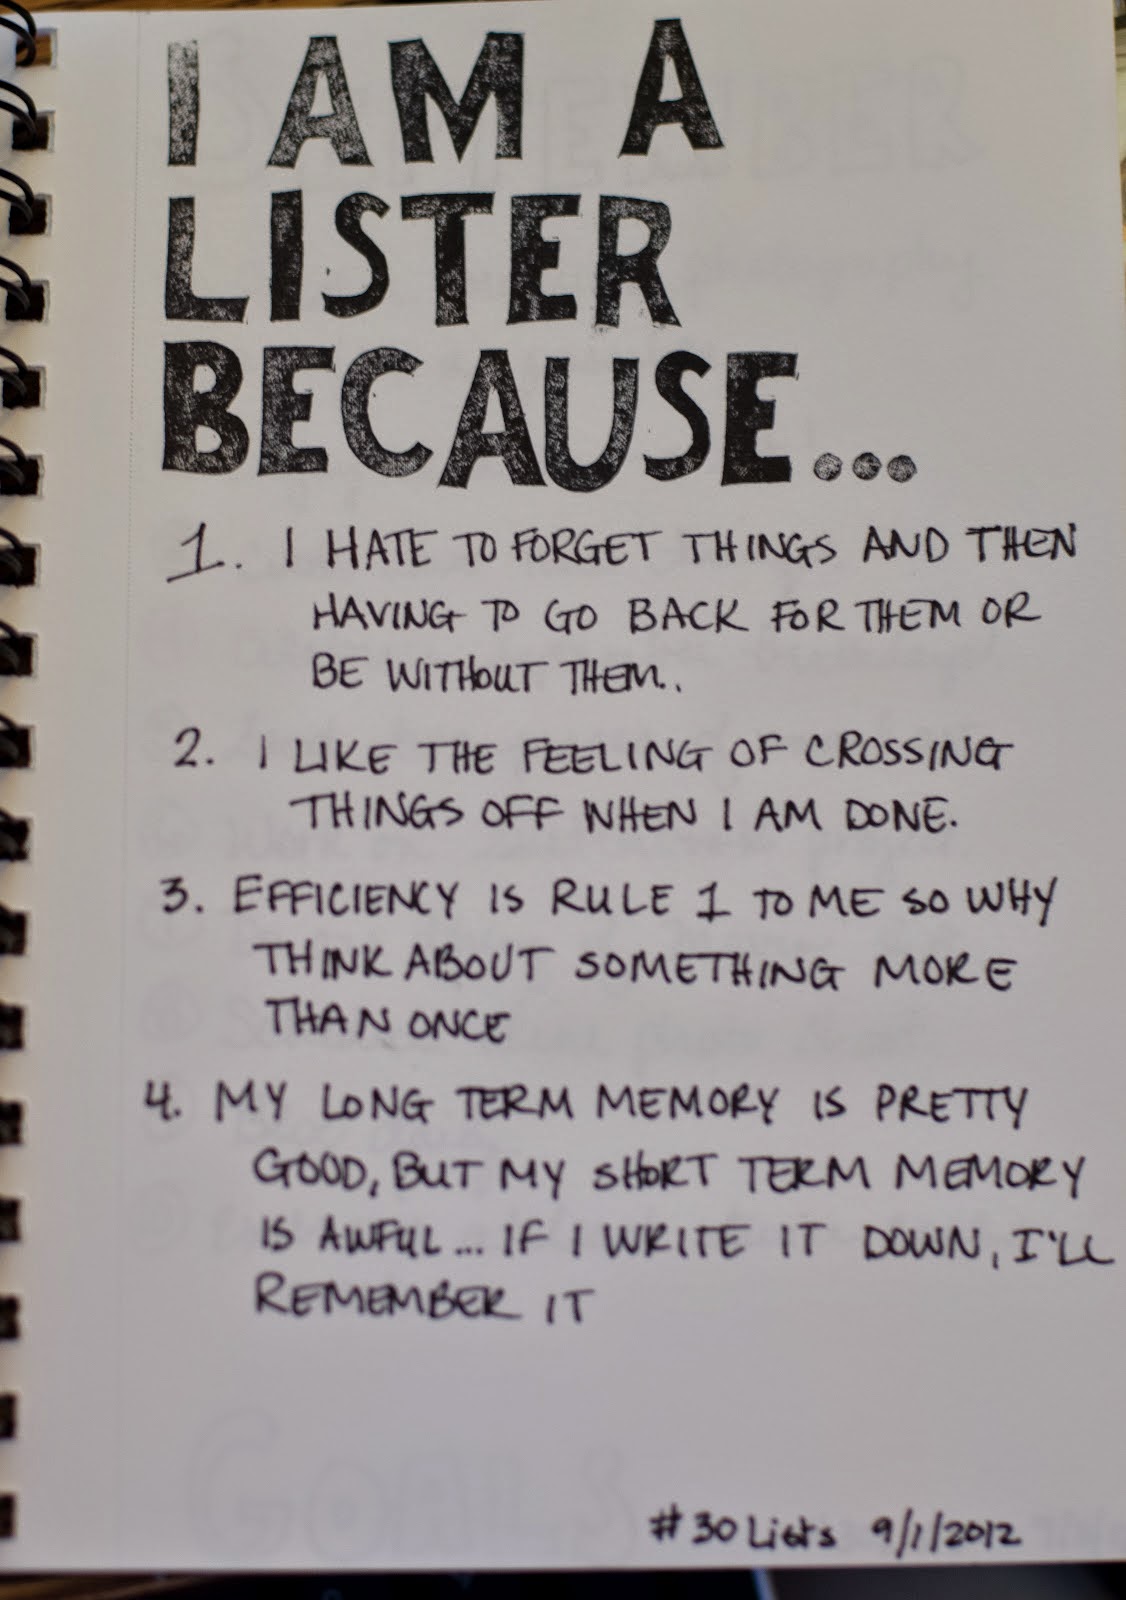 I AM A
LISTER
BECAUSE...
1. I HATE TO FORGET THINGS AND THEN
HAVING TO GO BACK FOR THEM OR
BE WITHOUT THEM..
2. I LIKE THE FEELING OF CROSSING
THINGS OFF WHEN I AM DONE.
3. EFFICIENCY IS RULE 1 TO ME SO WHY
THINK ABOUT SOMETHING MORE
THAN ONCE
4. MY LONG TERM MEMORY IS PRETTY
GOOD, BUT MY SHORT TERM MEMORY
IS AWFUL... IF I WRITE IT DOWN, I'LL
REMEMBER IT
GOALS
#30Lists 9/1/2012